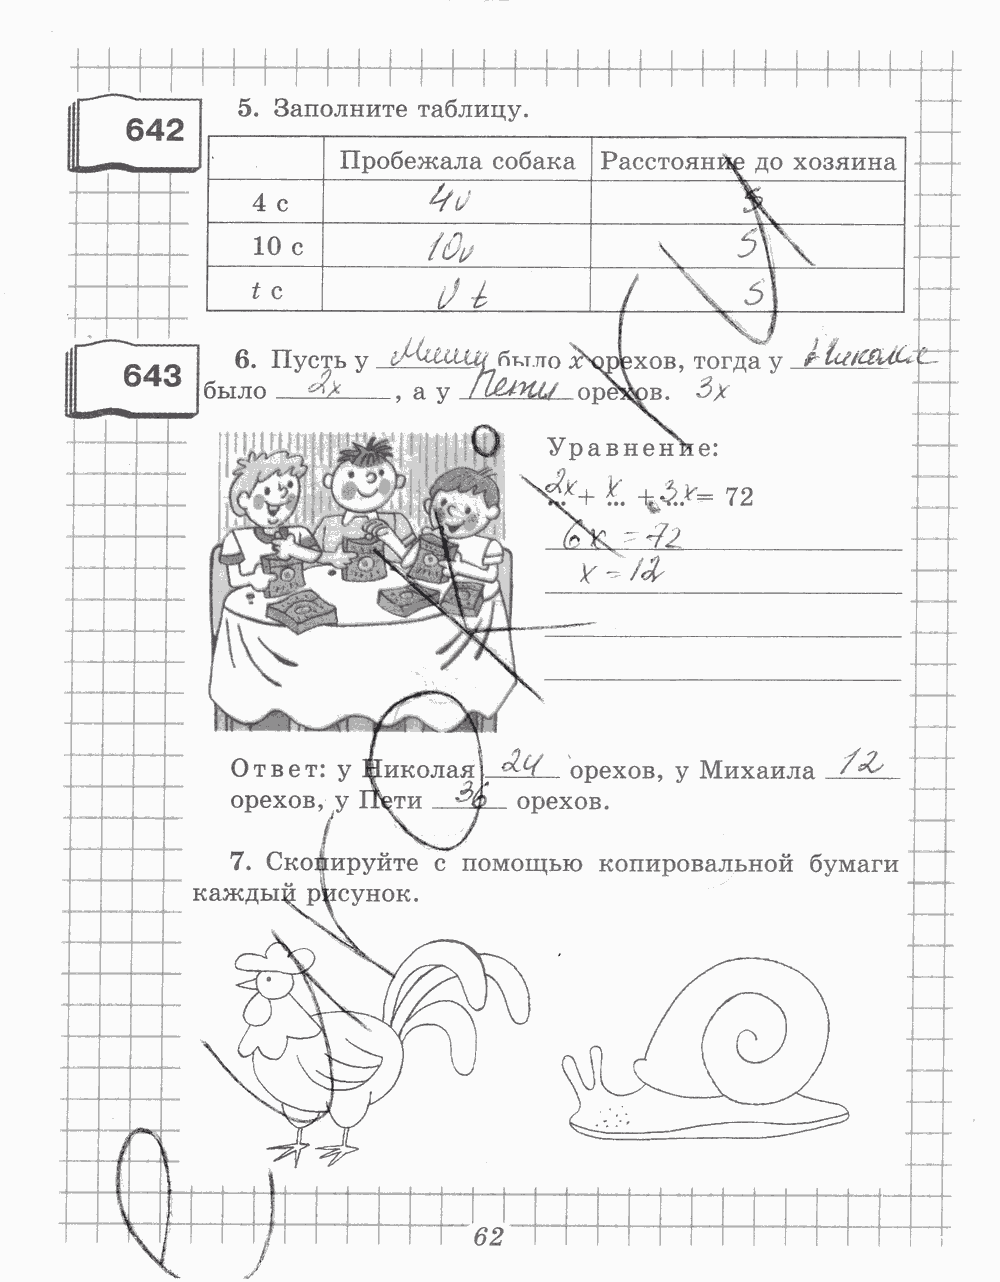 642
5. Заполните таблицу.
Пробежала собака Расстояние до хозяина
4 с 4v S
10 с 10v S
t с v t S
643
6. Пусть у Миши было x орехов, тогда у Николая
было 2x , а у Пети орехов. 3x
Уравнение:
2x + x + 3x = 72
6x = 72
x = 12
Ответ: у Николая 24 орехов, у Михаила 12
орехов, у Пети 36 орехов.
7. Скопируйте с помощью копировальной бумаги
каждый рисунок.
62